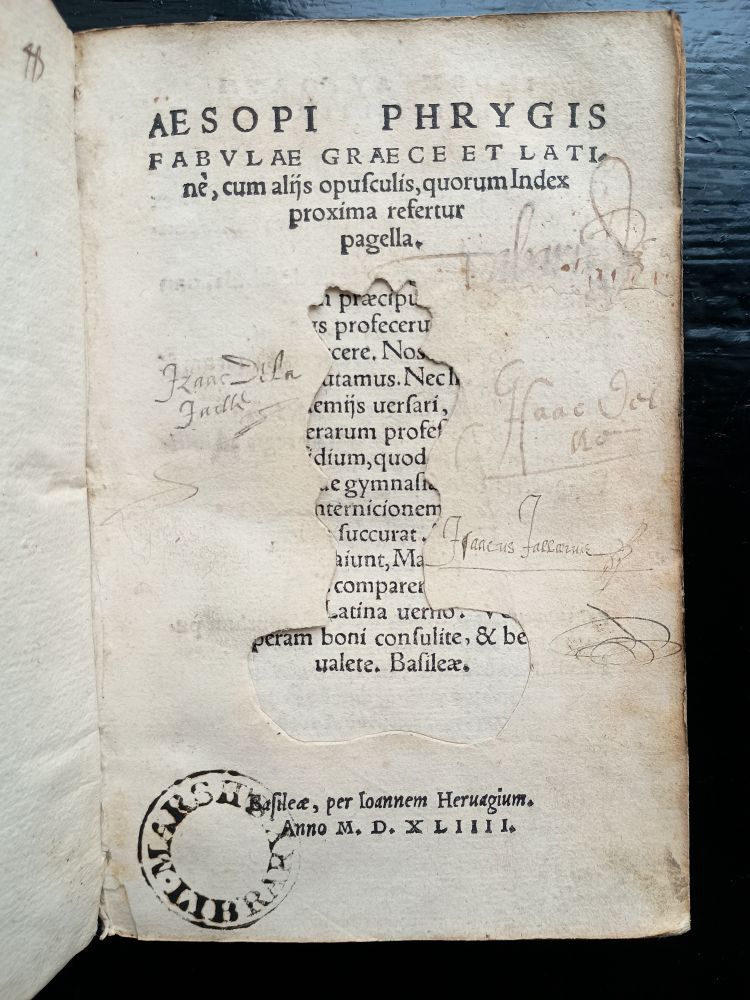 AESOPI PHRYGIS
FABVLAE GRAECE ET LATI-
nè, cum alijs opuſculis, quorum Index
proxima refertur
pagella.
præcipu
us profeceru
cere. Nos
utamus. Nec h
emijs uerſari,
erarum profeſ
dium, quod
ue gymnaſia
nternicionem
ſuccurat.
aiunt, Ma
comparer
Latina uerſio.
peram boni conſulite, & be
ualete. Baſileæ.
Izaac De La
Jaille
Iſaac
Iſaacus
Baſileæ, per Ioannem Heruagium.
Anno M. D. XLIIII.
MARSH
LIBRARY